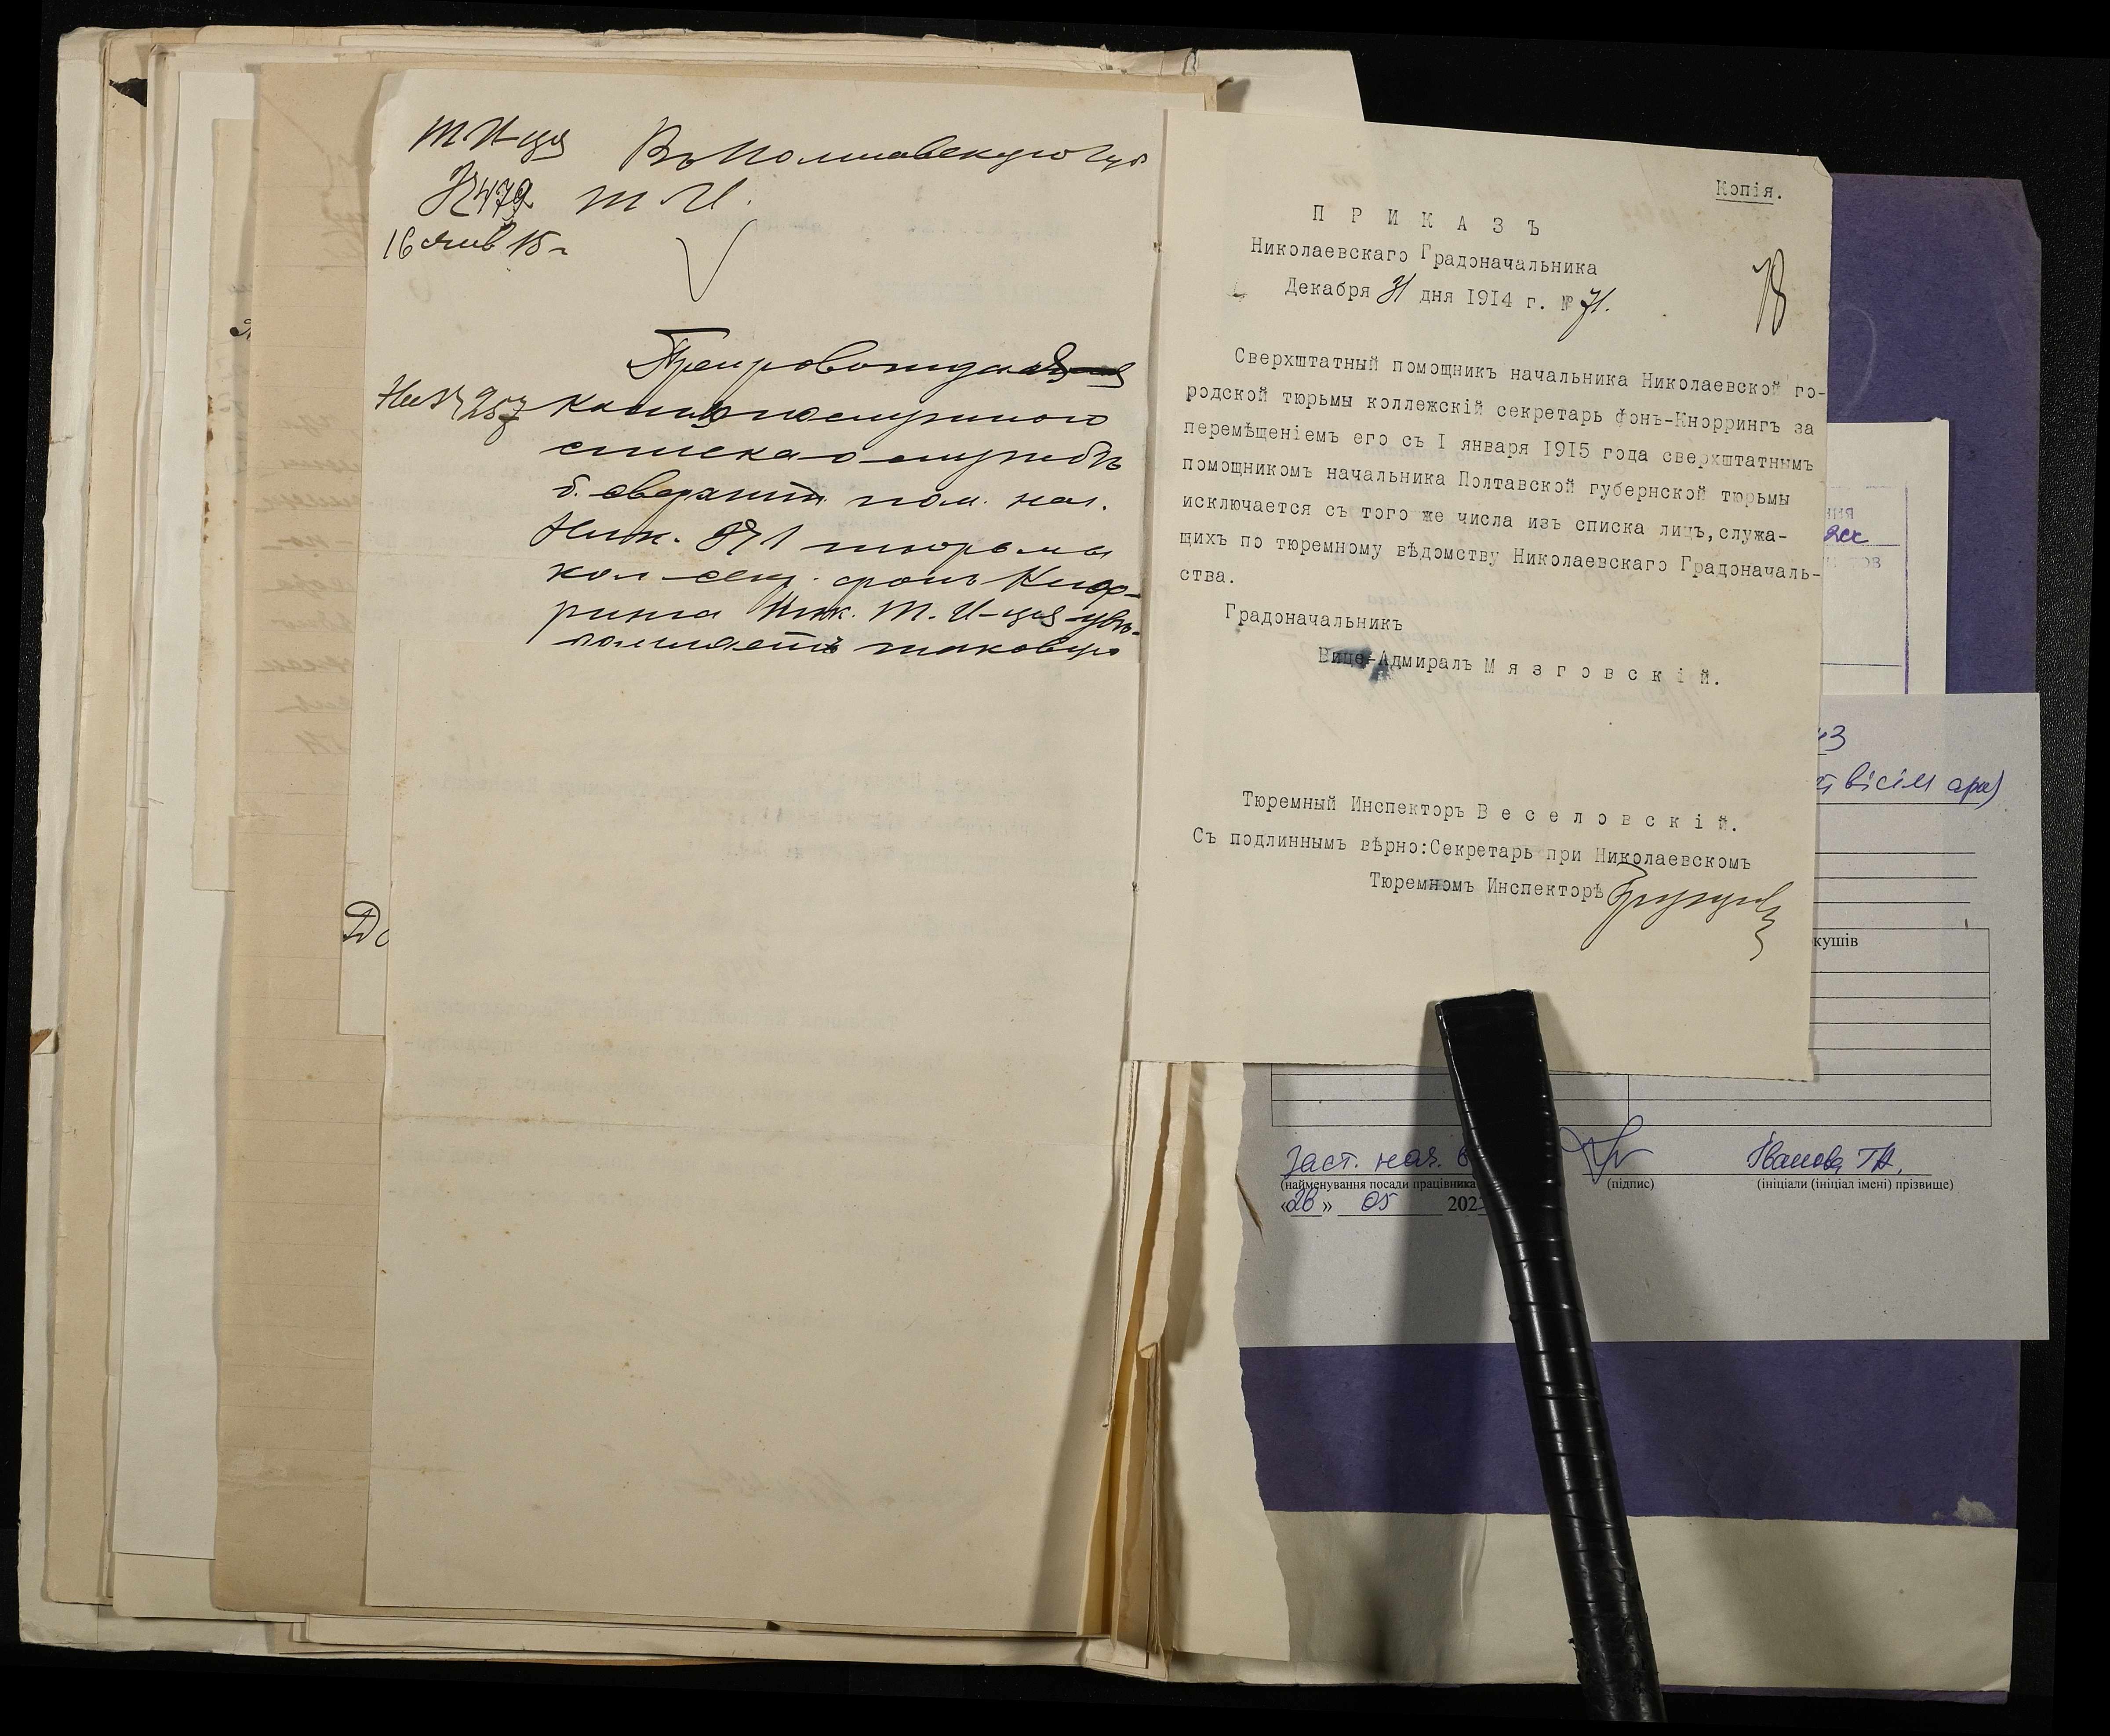 Т. И-ція
Въ Полтавскую Губ.
№ 479
Т. И.
16 янв 15 г
Препровождая
На № 257
копію послужного
списка о службѣ
б. сверхшт. пом. нач.
Ник. тюрьмы
кол. секр. фонъ Кнор-
ринга Ник. Т. И-ція увѣ-
таковую
До
Копія.
П Р И К А З Ъ
Николаевскаго Градоначальника
Декабря 31 дня 1914 г. № 71.
78
Сверхштатный помощникъ начальника Николаевской го-
родской тюрьмы коллежскій секретарь фонъ-Кноррингъ за
перемѣщеніемъ его съ I января 1915 года сверхштатнымъ
помощникомъ начальника Полтавской губернской тюрьмы
исключается съ того же числа изъ списка лицъ,служа-
щихъ по тюремному вѣдомству Николаевскаго Градоначаль-
ства.
Градоначальникъ
Вице-Адмиралъ М я з г о в с к і й.
Тюремный Инспекторъ В е с е л о в с к і й.
Съ подлиннымъ вѣрно:Секретарь при Николаевскомъ
Тюремномъ Инспекторѣ
вісім арк)
кушів
Заст. нач. в
Іванова Т.А.
(найменування посади працівника
(підпис)
(ініціали (ініціал імені) прізвище)
«26» 05 202